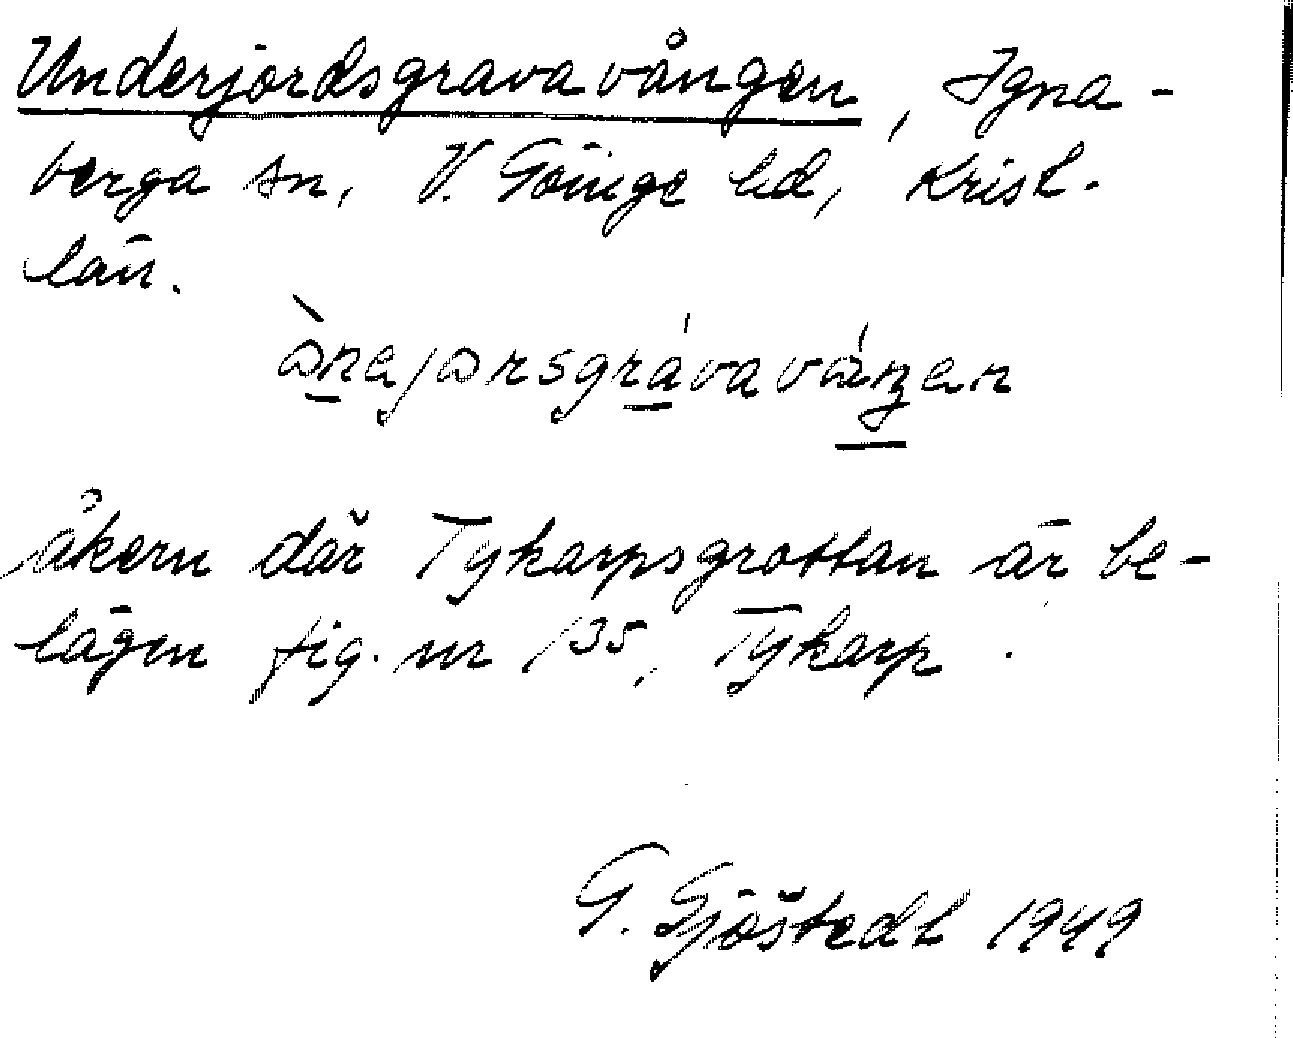 Underjordsgravavången, Igna-
berga sn, V. Göinge hd, Krist.
län.
ɔ̀nejɔrsgrávavɔ́ŋen
åkern där Tykarpsgrottan är be-
lägen fig. nr 135, Tykarp.
G. Sjöstedt 1949